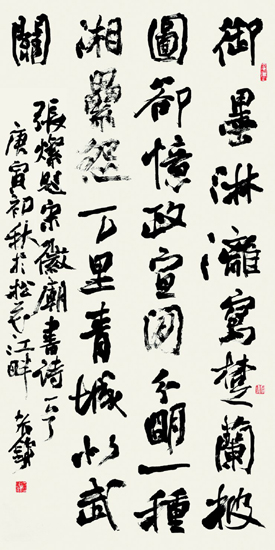 御墨淋漓寫楚蘭披
圖卻憶政宣間分明一種
湘纍怨万里青城似武
關
張燦題宋徽廟畫詩一
庚寅初秋於松花江畔